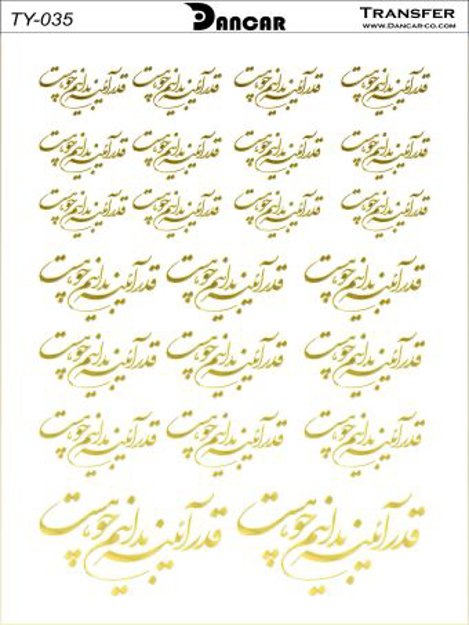 TY-035 DANCAR TRANSFER
WWW.DANCAR-CO.COM
قدر آئینه بدانیم چو هست قدر آئینه بدانیم چو هست قدر آئینه بدانیم چو هست قدر آئینه بدانیم چو هست
قدر آئینه بدانیم چو هست قدر آئینه بدانیم چو هست قدر آئینه بدانیم چو هست قدر آئینه بدانیم چو هست
قدر آئینه بدانیم چو هست قدر آئینه بدانیم چو هست قدر آئینه بدانیم چو هست قدر آئینه بدانیم چو هست
قدر آئینه بدانیم چو هست قدر آئینه بدانیم چو هست قدر آئینه بدانیم چو هست
قدر آئینه بدانیم چو هست قدر آئینه بدانیم چو هست قدر آئینه بدانیم چو هست
قدر آئینه بدانیم چو هست قدر آئینه بدانیم چو هست قدر آئینه بدانیم چو هست
قدر آئینه بدانیم چو هست قدر آئینه بدانیم چو هست